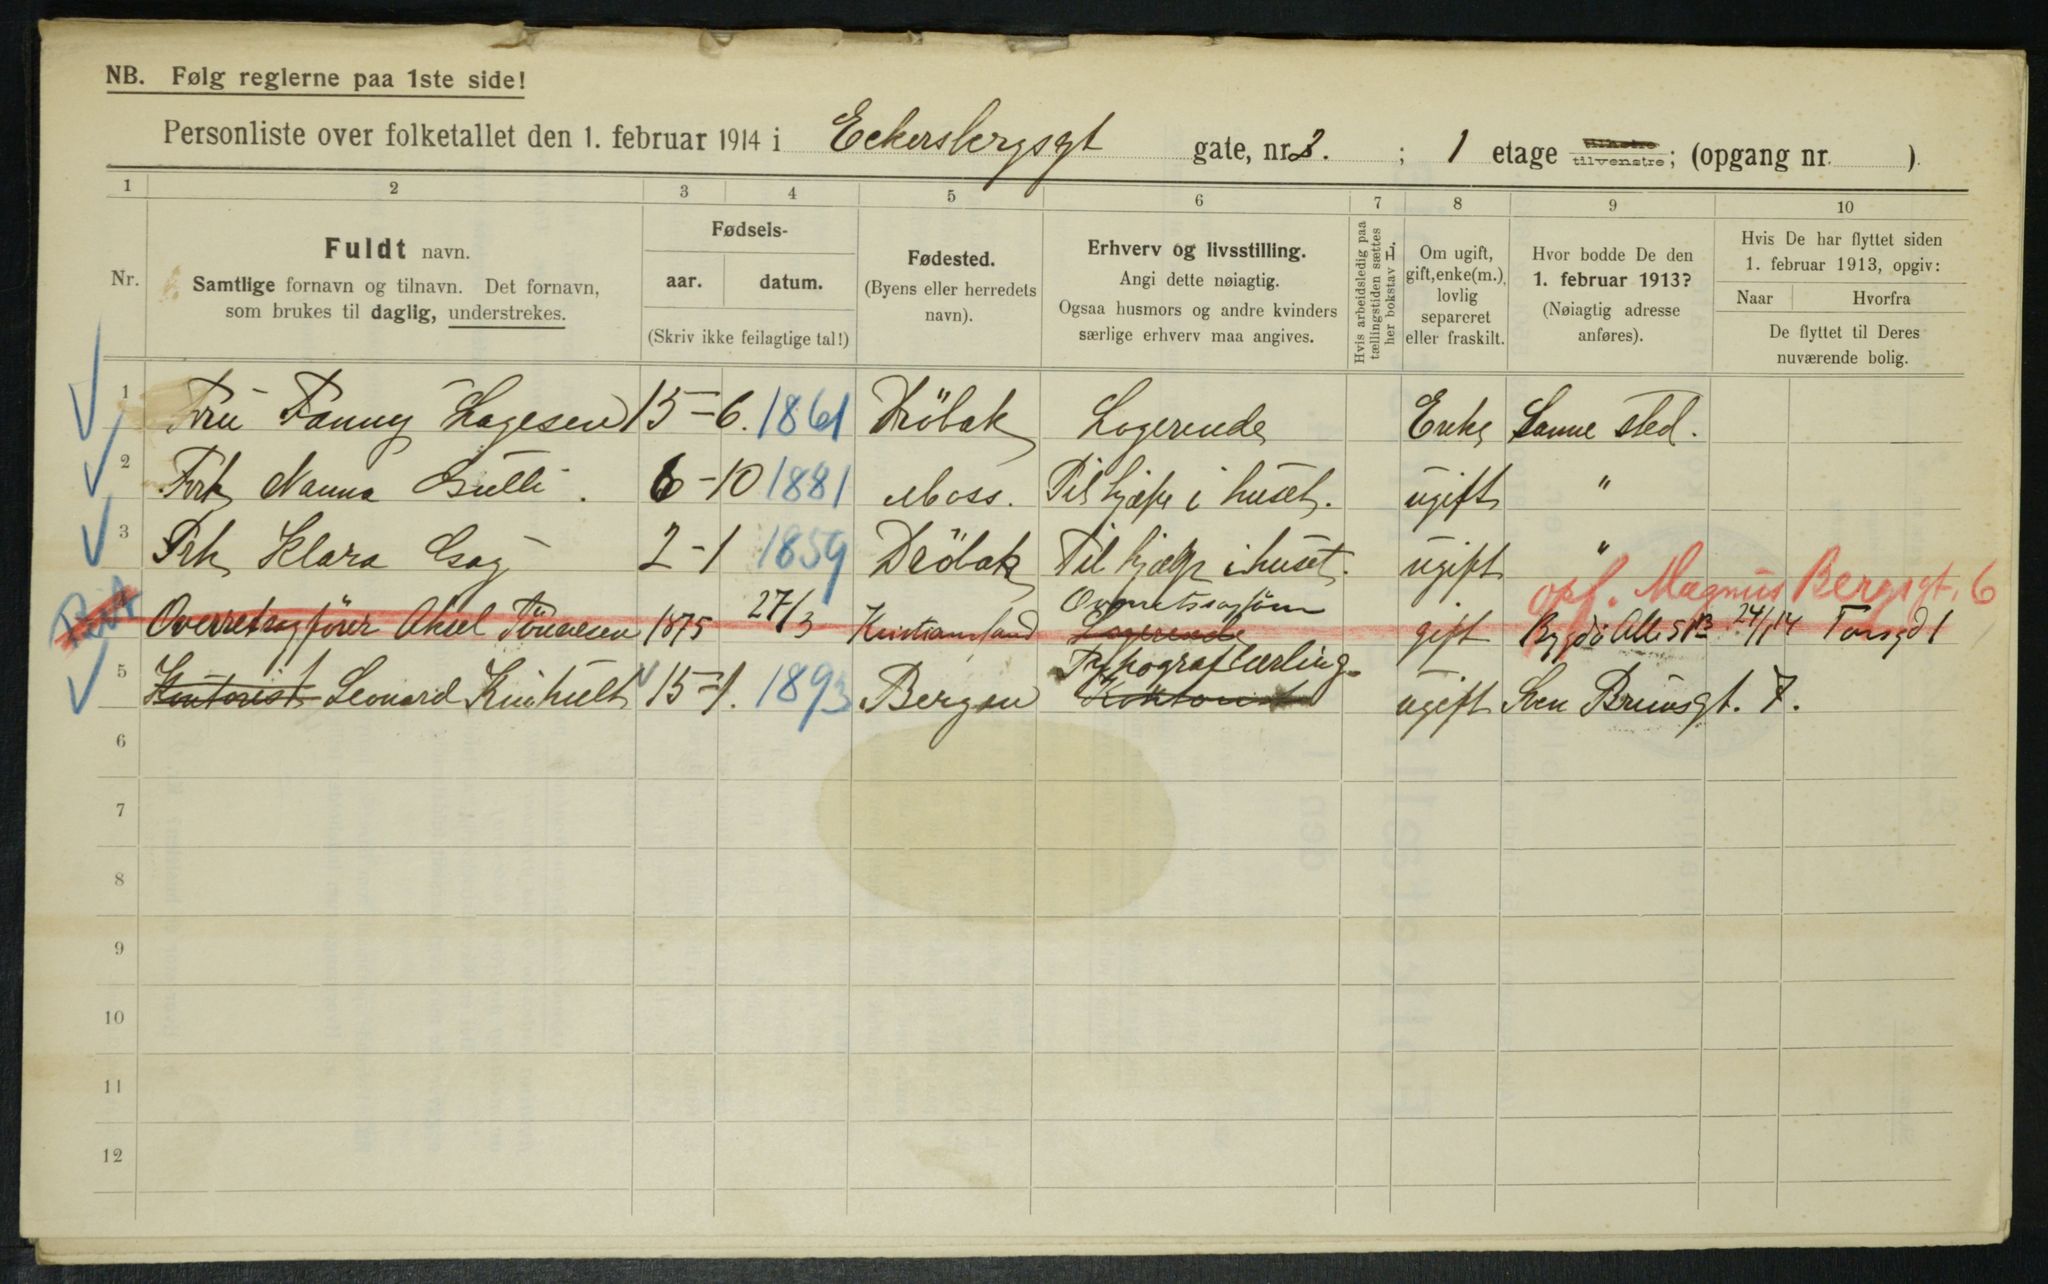 NB. Følg reglerne paa 1ste side!
Personliste over folketallet den 1. februar 1914 i Eckersbergsgt gate, nr. 3. ; 1 etage tilhøire tilvenstre; (opgang nr. ).
1 2 3 4 5 6 7 8 9 10
Nr.
Fuldt navn.
Samtlige fornavn og tilnavn. Det fornavn,
som brukes til daglig, understrekes.
Fødsels-
aar. datum.
(Skriv ikke feilagtige tal!)
Fødested.
(Byens eller herredets
navn).
Erhverv og livsstilling.
Angi dette nøiagtig.
Ogsaa husmors og andre kvinders
særlige erhverv maa angives.
Hvis arbeidsledig paa
tællingstiden sættes
her bokstav L.
Om ugift,
gift, enke(m.),
lovlig
separeret
eller fraskilt.
Hvor bodde De den
1. februar 1913?
(Nøiagtig adresse
anføres).
Hvis De har flyttet siden
1. februar 1913, opgiv:
Naar Hvorfra
De flyttet til Deres
nuværende bolig.
1 Fru Fanny Hagesen 15-6. 1861 Dröbak Logerende Enke Samme sted.
2 Frk Nanna 6-10 1881 Moss. Til hjælp i huset. ugift "
3 Frk Klara 2-1 1859 Dröbak Til hjælp i huset. ugift "
opf. Magnus Bergsgt. 6
4 Overretssagförer Aksel Tönnesen 1875 27/3 Kristiansand Overretssagförer Logerende gift Bygdö Alle 51B 24/1 14 Torsgd 1
5 Kontorist Leonard Kinhult 15-1. 1893 Bergen Typograflærling Kontorist ugift Sven Brunsgt. 7.
6
7
8
9
10
11
12